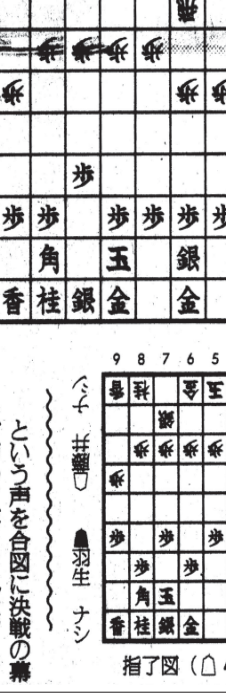 飛
歩 歩 歩 歩
歩 歩 歩
歩
歩 歩 歩 歩 歩 歩
角 玉 銀
香 桂 銀 金 金
9 8 7 6 5
香 桂 金 王
銀
歩 歩 歩 歩
歩
歩 歩 歩
歩 歩
角 玉
香 桂 銀 金
☖藤井 ナシ
☗羽生 ナシ
指了図（☖4
という声を合図に決戦の幕